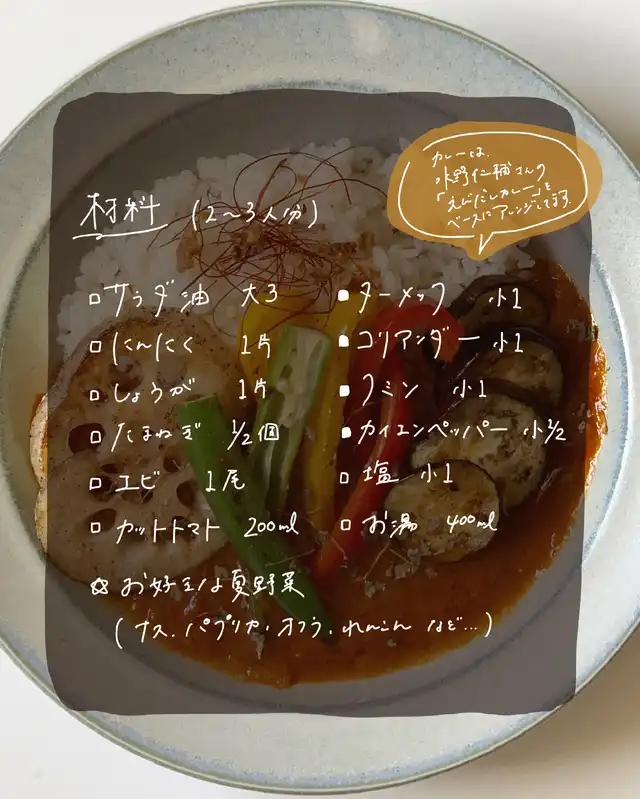 材料 (2〜3人分)
カレーは、
水野仁輔さんの
「えびだしカレー」を
ベースにアレンジしてます。
□サラダ油 大3
□にんにく 1片
□しょうが 1片
□たまねぎ 1/2個
□エビ 1尾
□カットトマト 200ml
■ターメリック 小1
■コリアンダー 小1
■クミン 小1
■カイエンペッパー 小1/2
□塩 小1
□お湯 400ml
☆お好きな夏野菜
(ナス、パプリカ・オクラ、れんこんなど…)